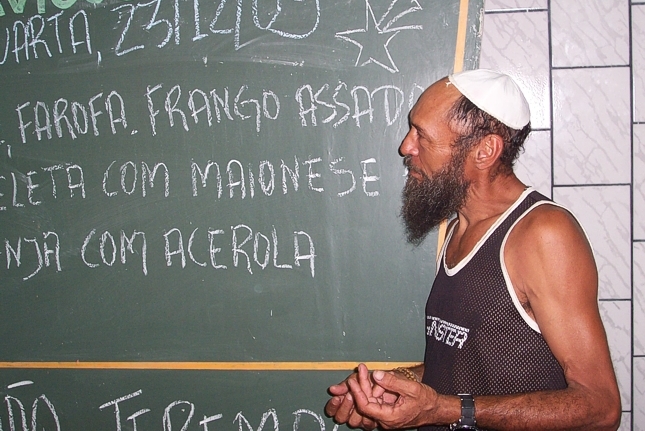 UARTA, 23/12/09
FAROFA. FRANGO ASSADO
LETA COM MAIONESE
NJA COM ACEROLA
ÃO TIREMO
MASTER